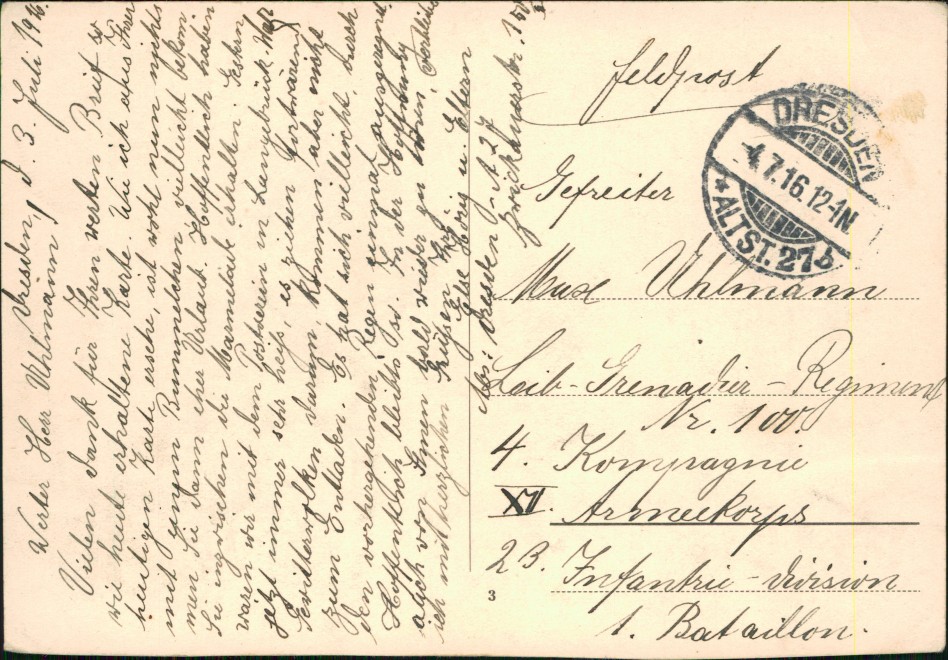 Dresden, d. 3. Juli 1916.
Werter Herr Uhlmann!
Vielen Dank für Ihren werten Brief u
wie heute erhaltene Karte. Wie ich aus Ihrer
heutigen Karte ersehe, ist wohl nun nichts
mit zum Bummelchen, vielleicht bekom-
men Sie dann eher Urlaub. Hoffentlich haben
Sie inzwischen die Marmelade erhalten. Essen
waren wir mit dem Postverein in Langebrück.
jetzt immer sehr heiß, es ziehen fortwärend
Gewitterwolken darum, kommen aber nicht
zum Entladen. Es hat sich vielleicht, durch
den vorhergehenden Regen einmal ausgeregnet
Hoffentlich bleibts so. In der Hoffnung
auch von Ihnen bald wieder zu hören, verbleibe
ich mit herzlichen Grüßen Ihre
Else Hörig u. Eltern
Abs: Dresden A 27
Zwickauerstr. 150
Feldpost
DRESDEN
4.7.16.12-1N.
* ALTST. 27 b
Gefreiter
Max Uhlmann
Leib-Grenadier-Regiment
Nr. 100.
4. Kompagnie
XII. Armeekorps
23. Infantrie-Division
1. Bataillon.
3